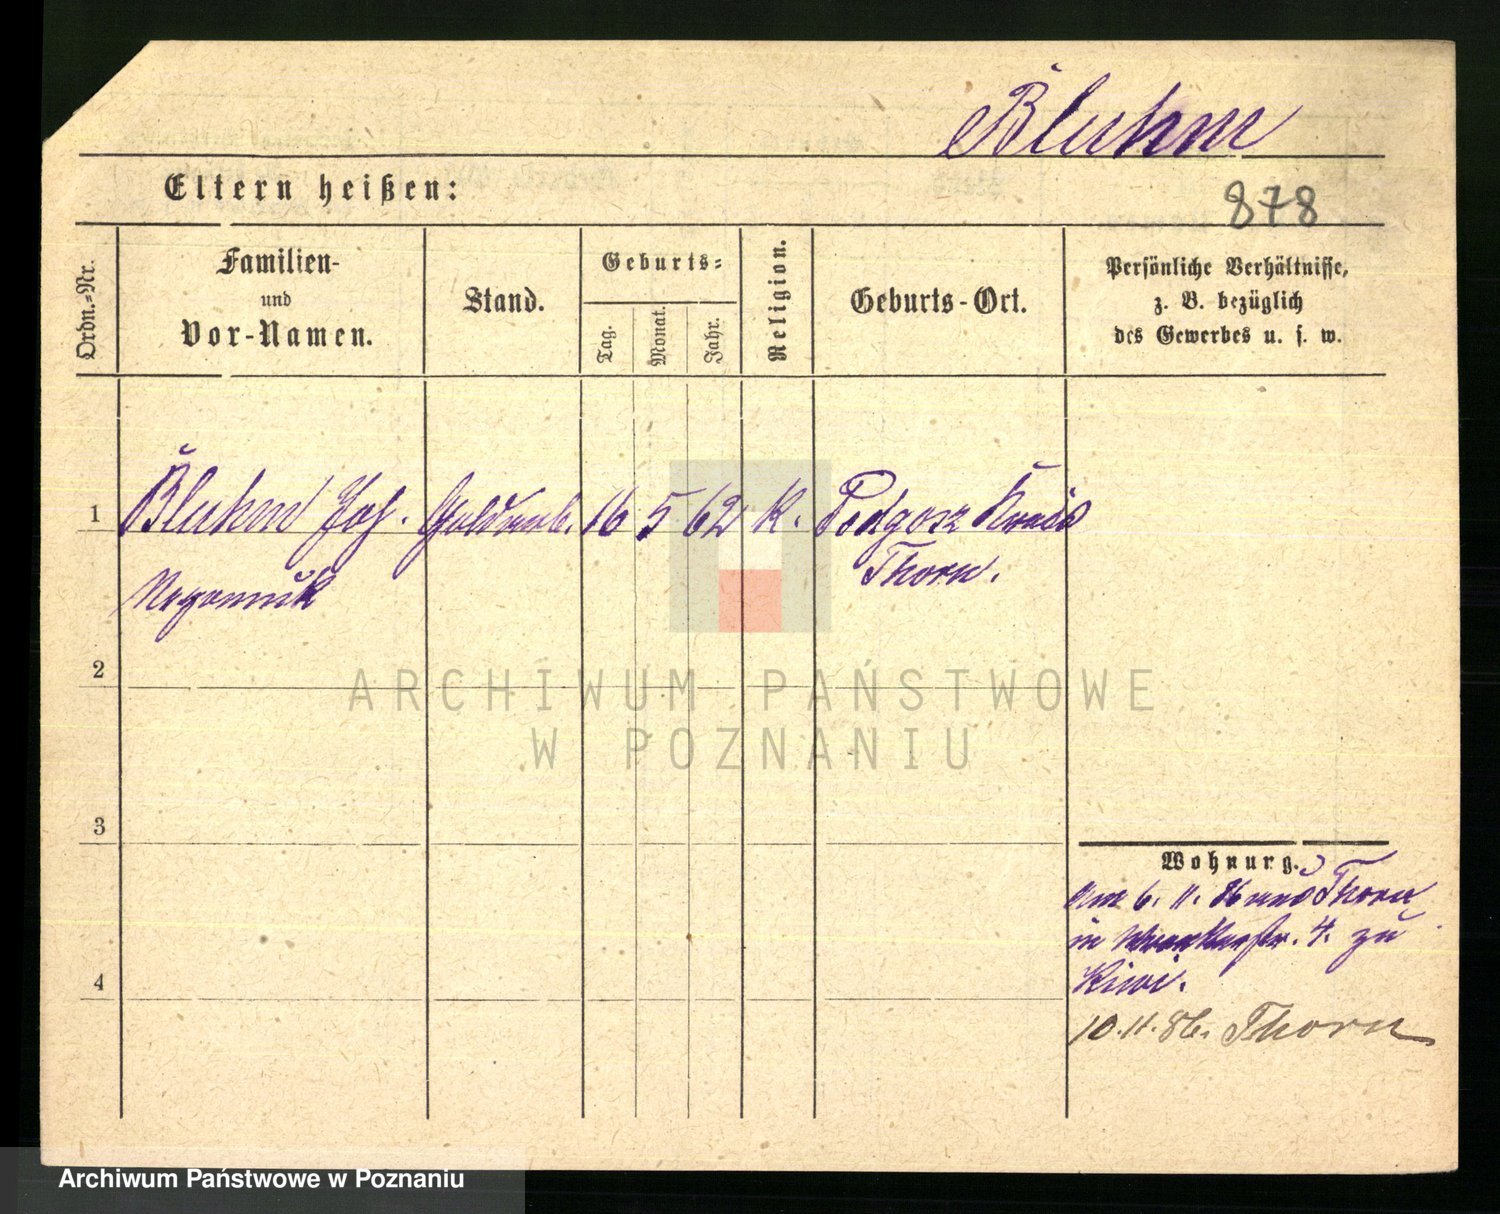 Bluhm
Eltern heißen:
878
Ordn.-Nr.
Familien-
und
Vor-Namen.
Stand.
Geburts-
Tag.
Monat.
Jahr.
Religion.
Geburts-Ort.
Persönliche Verhältnisse,
z. B. bezüglich
des Gewerbes u. s. w.
1 Bluhm Jos. 16 5 62 K. Podgorz Kreis
Thorn.
2
ARCHIWUM PAŃSTWOWE
W POZNANIU
3
Wohnung.
Am 6. 11. 86 aus Thorn
in 4. zu
4
10.11.86. Thorn
Archiwum Państwowe w Poznaniu